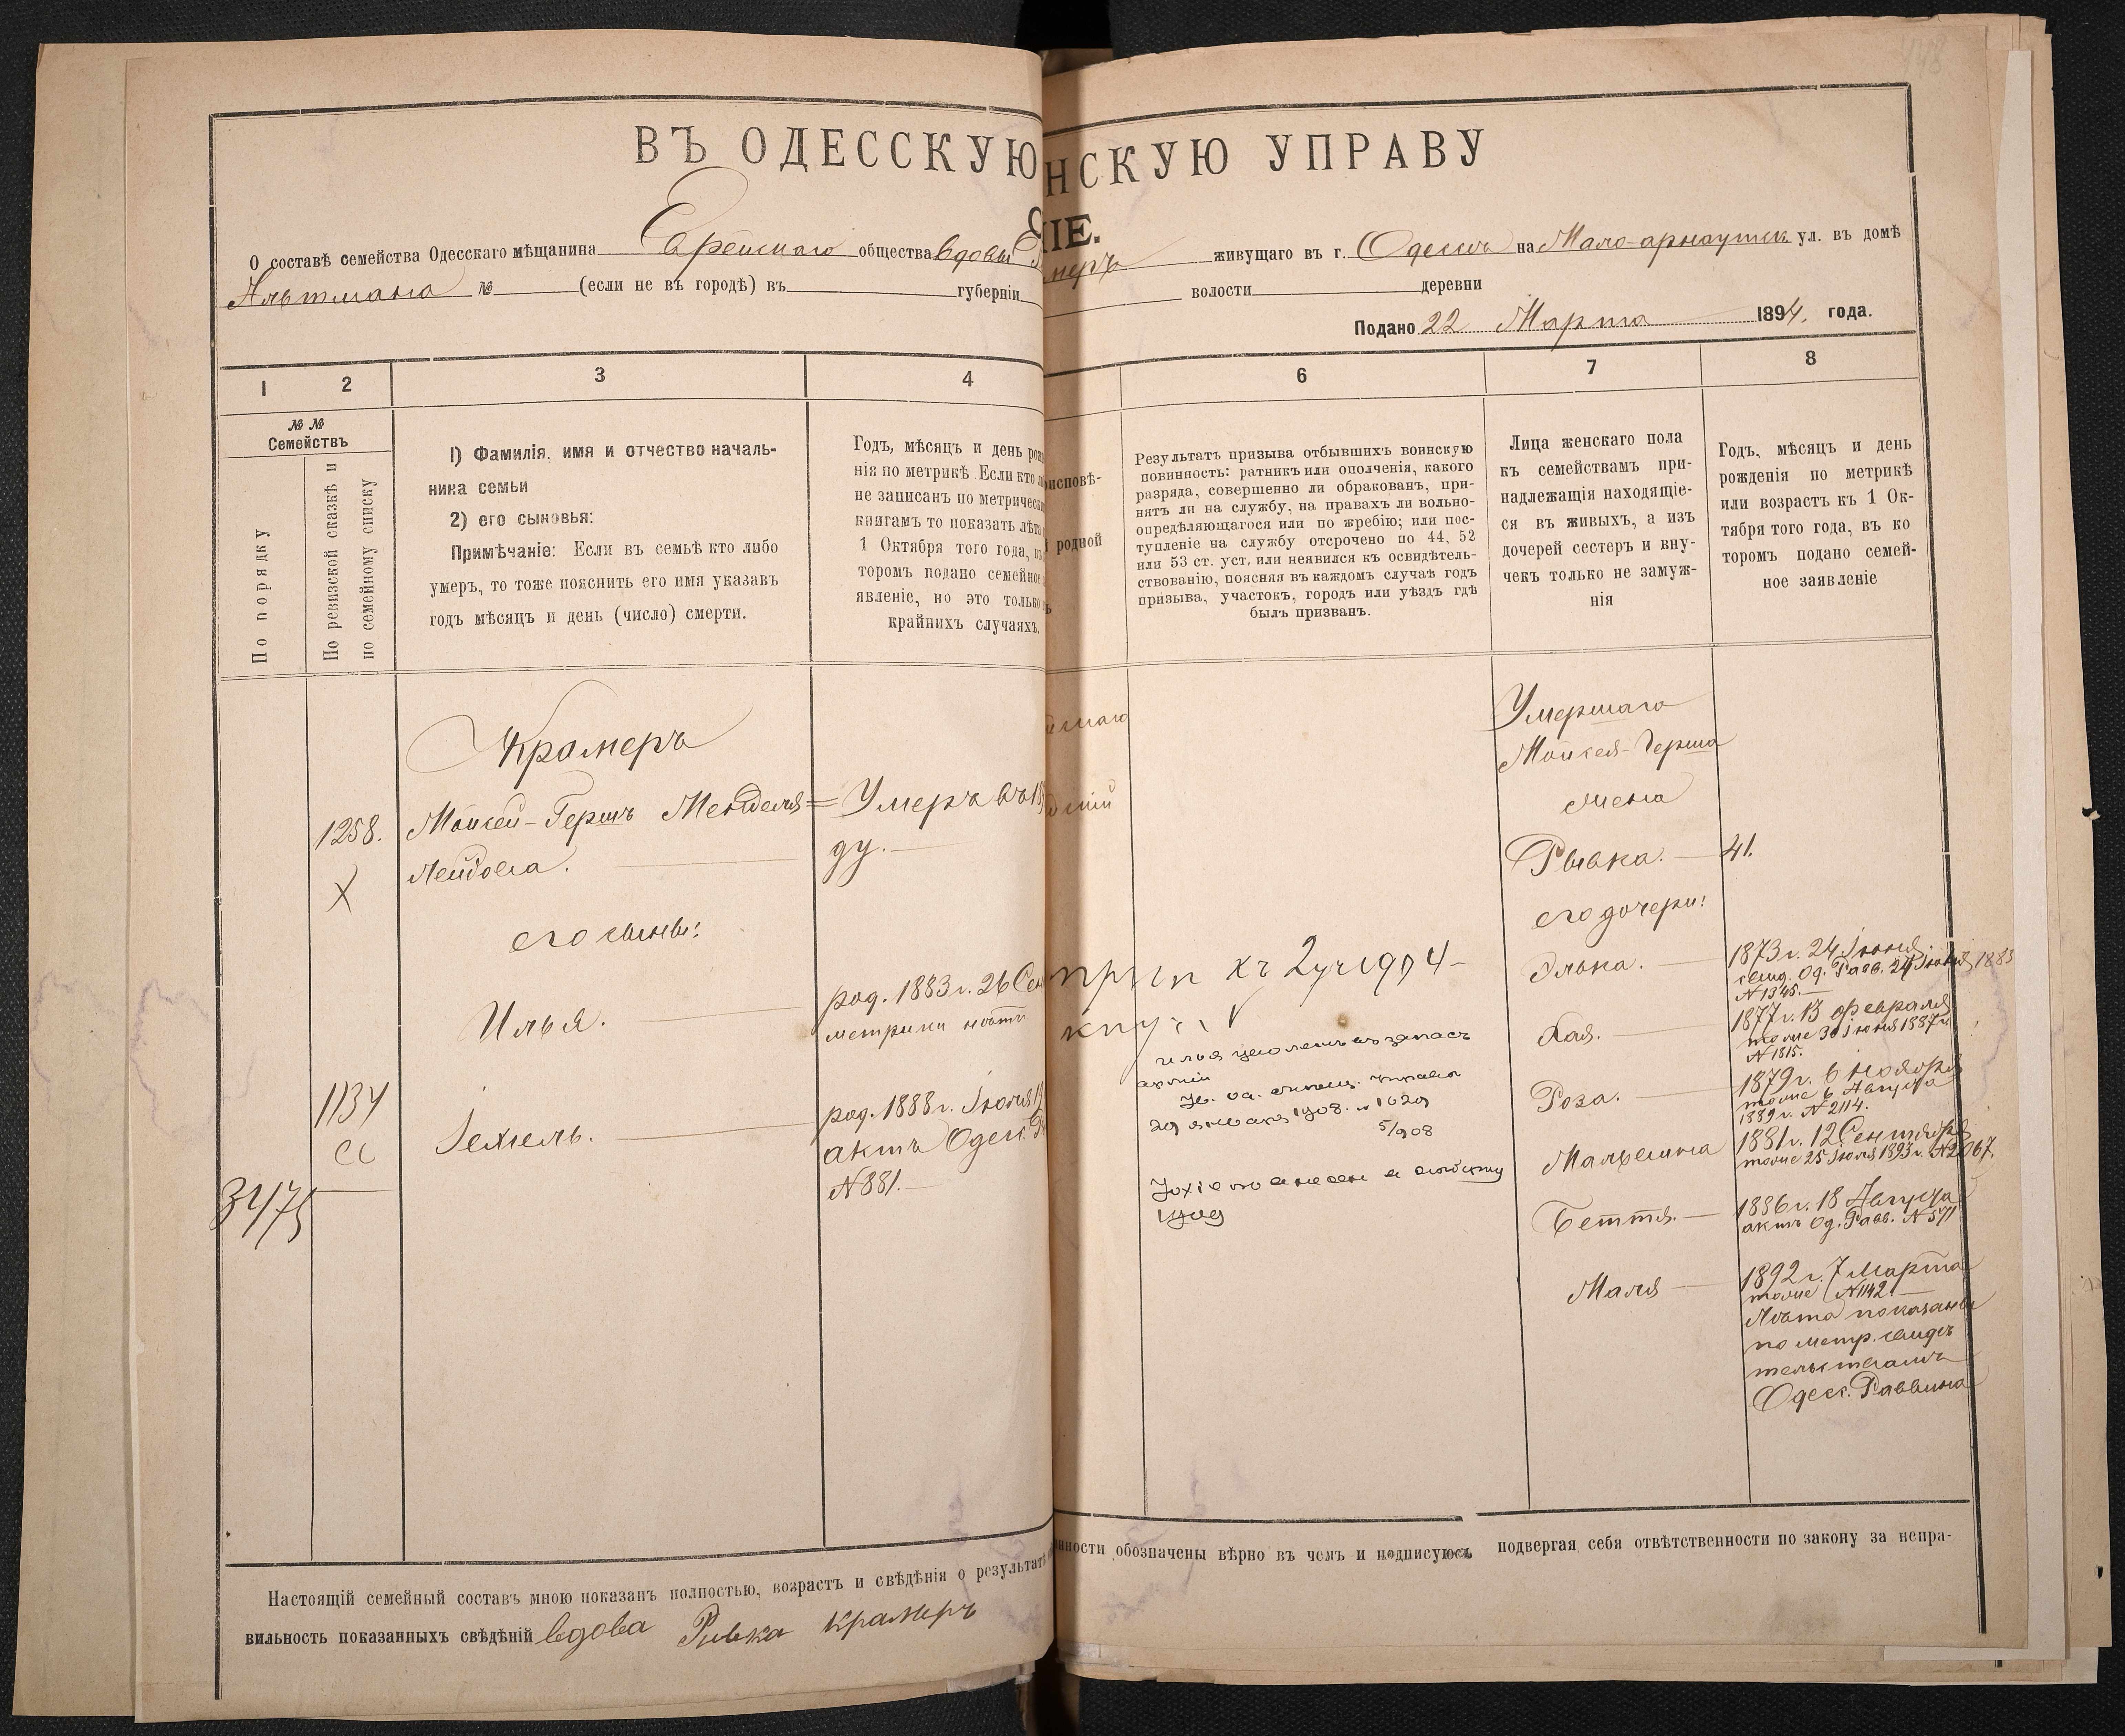 ВЪ ОДЕССКУЮ
НСКУЮ УПРАВУ
ІЕ.
О составѣ семейства Одесскаго мѣщанина Еврейскаго общества вдовы
меръ живущаго въ г. Одессѣ на Мало-арнаутск ул. въ домѣ
Альтмана № (если не въ городѣ) въ губерніи
волости деревни
Подано 22 Марта 1894. года.
1 2 3 4
6 7 8
№ №
Семействъ
По порядку
По ревизской сказкѣ и
по семейному списку
1) Фамилія, имя и отчество началь-
ника семьи
2) его сыновья:
Примѣчаніе: Если въ семьѣ кто либо
умеръ, то тоже пояснить его имя указавъ
годъ мѣсяцъ и день (число) смерти.
Годъ, мѣсяцъ и день рож
нія по метрикѣ. Если кто
не записанъ по метрическ
книгамъ то показать лѣта
1 Октября того года, въ
торомъ подано семейное
явленіе, но это только
крайнихъ случаяхъ.
исповѣ-
родной
Результатъ призыва отбывшихъ воинскую
повинность: ратникъ или ополченія, какого
разряда, совершенно ли обракованъ, при-
нятъ ли на службу, на правахъ ли вольно-
опредѣляющагося или по жребію; или пос-
тупленіе на службу отсрочено по 44, 52
или 53 ст. уст. или неявился къ освидѣтель-
ствованію, поясняя въ каждомъ случаѣ годъ
призыва, участокъ, городъ или уѣздъ гдѣ
былъ призванъ.
Лица женскаго пола
къ семействамъ при-
надлежащія находящіе-
ся въ живыхъ, а изъ
дочерей сестеръ и вну-
чекъ только не замуж-
нія
Годъ, мѣсяцъ и день
рожденія по метрикѣ
или возрастъ къ 1 Ок-
тября того года, въ ко
торомъ подано семей-
ное заявленіе
Крамеръ
1258. Мойсей-Гершъ Менделя= Умеръ въ 18
X Лейбова. ду.
его сыновья:
Илья. род. 1883 г. 26 Сен
метрики нѣтъ
1134 Іехіель. род. 1888 г. Іюля 19
актъ Одесс. Р
N 881.
3475
2 уч 1904
Илья уволенъ въ запасъ
арміи
1908. N 1629
5/908
Умершаго
Мойсея-Герша
жена
Рывка. 41.
его дочери:
Элька. 1873 г. 24 Іюня
свид. Од. Равв. 24 Іюня 1883
N 1345.
Хая. 1877 г. 13 февраля
тоже 30 Іюня 1887 г.
N 1815.
Роза. 1879 г. 6 Ноября
тоже 6 Августа
1889 г. N 2114.
Мальвина 1881 г. 12 Сентября
тоже 25 Іюля 1893 г. N 2067.
Беття. 1886 г. 18 Августа
актъ Од. Равв. N 571
Маля 1892 г. 7 Марта
тоже N 1142.
Лѣта показаны
по метр. свидѣ
тельствамъ
Одесс. Раввина
Настоящій семейный составъ мною показанъ полностью, возрастъ и свѣдѣнія о результатѣ
нности обозначены вѣрно въ чемъ и подписуюсь подвергая себя отвѣтственности по закону за непра-
вильность показанныхъ свѣдѣній вдова Ривка Крамеръ